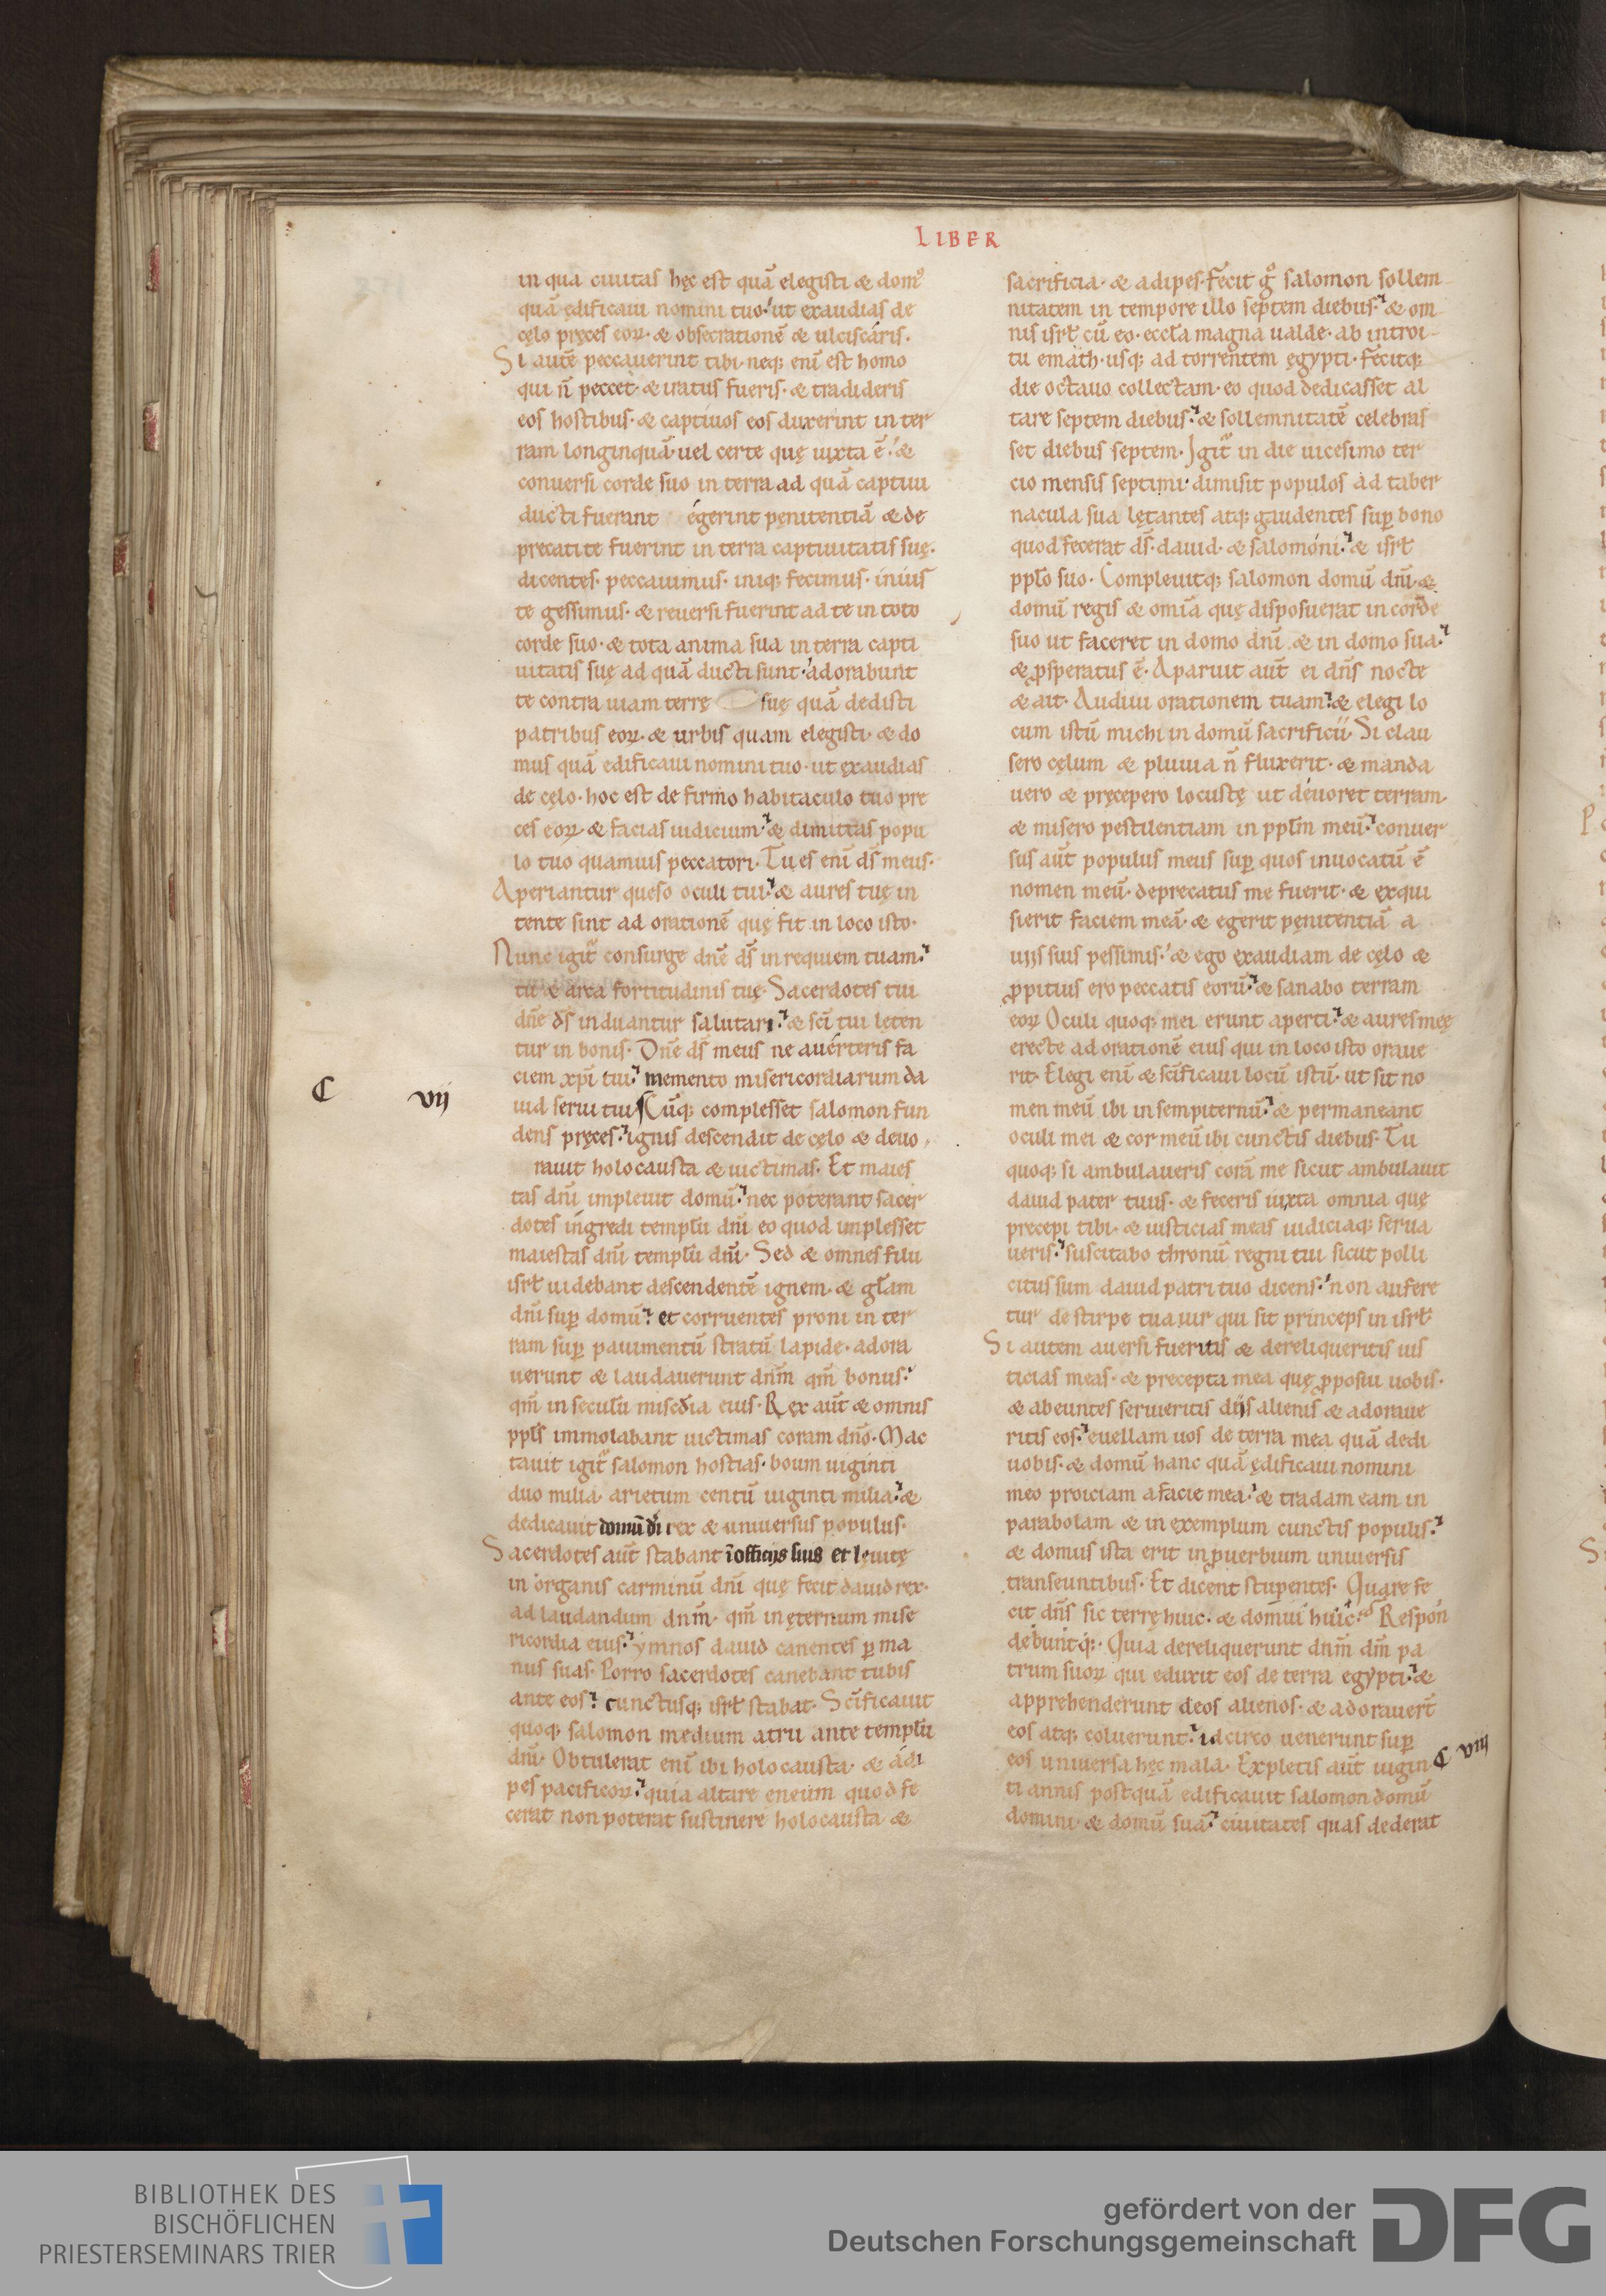 LIBER
in qua ciuitas hęc est quā elegisti & domꝰ
quā ędificaui nomini tuo. ut exaudias de
cęlo pręces eoꝝ. & obsecrationē & ulciscáris.
Si autē peccauerint tibi. neq; eni est homo
qui n̄ peccet. & iratus fueris. & tradideris
eos hostibus. & captiuos eos duxerint in ter
ram longinquā. uel certe quę iuxta ē. &
conuersi corde suo in terra ad quā captiui
ducti fuerant égerint pęnitentiā & de
precati te fuerint in terra captiuitatis suę.
dicentes. peccauimus. iniq; fecimus. inius
te gessimus. & reuersi fuerint ad te in toto
corde suo. & tota anima sua in terra capti
uitatis suę ad quā ducti sunt. adorabunt
te contra uiam terrę suę quā dedisti
patribus eoꝝ. & urbis quam elegisti. & do
mus quā edificaui nomini tuo. ut ęxaudias
de cęlo. hoc est de firmo habitaculo tuo pre
ces eoꝝ & facias iudicium. & dimittas popu
lo tuo quamuis peccatori. Tu es eni d̄s meus.
Aperiantur queso oculi tui. & aures tuę in
tente sint ad orationē quę fit in loco isto.
Nunc igit̄ consurge dn̄e d̄s in requiem tuam.
tu & arca fortitudinis tuę. Sacerdotes tui
dn̄e d̄s induantur salutari. & sc̄i tui lęten
tur in bonis. Dn̄e d̄s meus ne auérteris fa
ciem xp̄i tui. memento misericordiarum da
C vij
uid serui tui. Cūq; complesset salomon fun
dens pręces. ignis descendit de cęlo & deuo
rauit holocausta & uictimas. Et maies
tas dn̄i impleuit domū. nec poterant sacer
dotes ingredi templū dn̄i eo quod implesset
maiestas dn̄i templū dn̄i. Sed & omnes filii
isrł uidebant descendentē ignem. & głam
dn̄i sup̄ domū. et corruentes proni in ter
ram sup̄ pauimentū stratū lapide. adora
uerunt & laudauerunt dn̄m qm̄ bonus.
qm̄ in seculū misc̄dia eius. Rex aūt & omnis
ppłs immolabant uictimas coram dn̄o. Mac
tauit igit̄ salomon hostias. boum uiginti
duo milia. arietum centū uiginti milia. &
dedicauit domū d̄i rex & uniuersus populus.
Sacerdotes aūt stabant ī officijs suis et lęuitę
in organis carminū dn̄i quę fecit dauid rex.
ad laudandum dn̄m. qm̄ in ęternum mise
ricordia eius. ymnos dauid canentes p̱ ma
nus suas. Porro sacerdotes canebant tubis
ante eos. cunctusq; isrł stabat. Sc̄ificauit
quoq; salomon medium atrii ante templū
dn̄i. Obtulerat eni ibi holocausta. & ádi
pes pacificoꝝ. quia altare eneum quod fe
cerat non poterat sustinere holocausta &
sacrificia. & adipes. Fecit g̊ salomon sollem
nitatem in tempore illo septem diebus. & om
nis isrł cū eo. eccła magna ualde. ab introi
tu emath. usq; ad torrentem ęgypti. Fécitq;
die octauo collectam. eo quod dedicasset al
tare septem diebus. & sollemnitatē celebras
set diebus septem. Igit̄ in die uicesimo ter
cio mensis septimi. dimisit populos ad taber
nacula sua lętantes atq; gaudentes sup̄ bono
quod fecerat d̄s. dauid. & salomóni. & isrł
ppło suo. Compleuitq; salomon domū dn̄i. &
domū regis & omīa quę disposuerat in corde
suo ut faceret in domo dn̄i & in domo sua.
& ꝓsperatus ē. Aparuit aūt ei dn̄s nocte
& ait. Audiui orationem tuam. & elegi lo
cum istū michi in domū sacrificii. Si clau
sero cęlum & pluuia n̄ fluxerit. & manda
uero & pręcepero locustę ut déuoret terram.
& misero pestilentiam in ppłm meū. conuer
sus aūt populus meus sup̄ quos inuocatū ē
nomen meū. deprecatus me fuerit. & exqui
sierit faciem meā. & egerit pęnitentiā a
uijs suis pessimis. & ego ęxaudiam de cęlo &
ꝓpitius ero peccatis eorū. & sanabo terram
eoꝝ Oculi quoq; mei erunt aperti. & aures meę
erecte ad orationē eius qui in loco isto oraue
rit. Elegi eni & sc̄ificaui locū istū. ut sit no
men meū ibi in sempiternū. & permaneant
oculi mei & cor meū ibi cunctis diebus. Tu
quoq; si ambulaueris corā me sicut ambulauit
dauid pater tuus. & feceris iuxta omnia quę
precepi tibi. & iusticias meas iudiciaq; serua
ueris. suscitabo thronū regni tui sicut polli
citus sum dauid patri tuo dicens. non aufere
tur de stirpe tua uir qui sit princeps in isrł
Si autem auersi fueritis & dereliqueritis ius
ticias meas. & precepta mea quę ꝓposui uobis.
& abeuntes serueritis dijs alienis & adoraue
ritis eos. euellam uos de terra mea quā dedi
uobis. & domū hanc quā ędificaui nomini
meo proiciam a facie mea. & tradam eam in
parabolam & in exemplum cunctis populis.
& domus ista erit in ꝓuerbium uniuersis
transeuntibus. Et dicent stupentes. Quare fe
cit dn̄s sic terrę huic. & domui huic. Respon
debuntq;. Quia dereliquerunt dn̄m dm̄ pa
trum suoꝝ qui eduxit eos de terra egypti. &
apprehenderunt deos alienos. & adorauer̄t
eos atq; coluerunt. idcirco uenerunt sup̄
eos uniuersa hęc mala. Expletis aūt uigin
C viij
ti annis postquā edificauit salomon domū
domini. & domū suā. ciuitates quas dederat
BIBLIOTHEK DES
BISCHÖFLICHEN
PRIESTERSEMINARS TRIER
gefördert von der
Deutschen Forschungsgemeinschaft
DFG